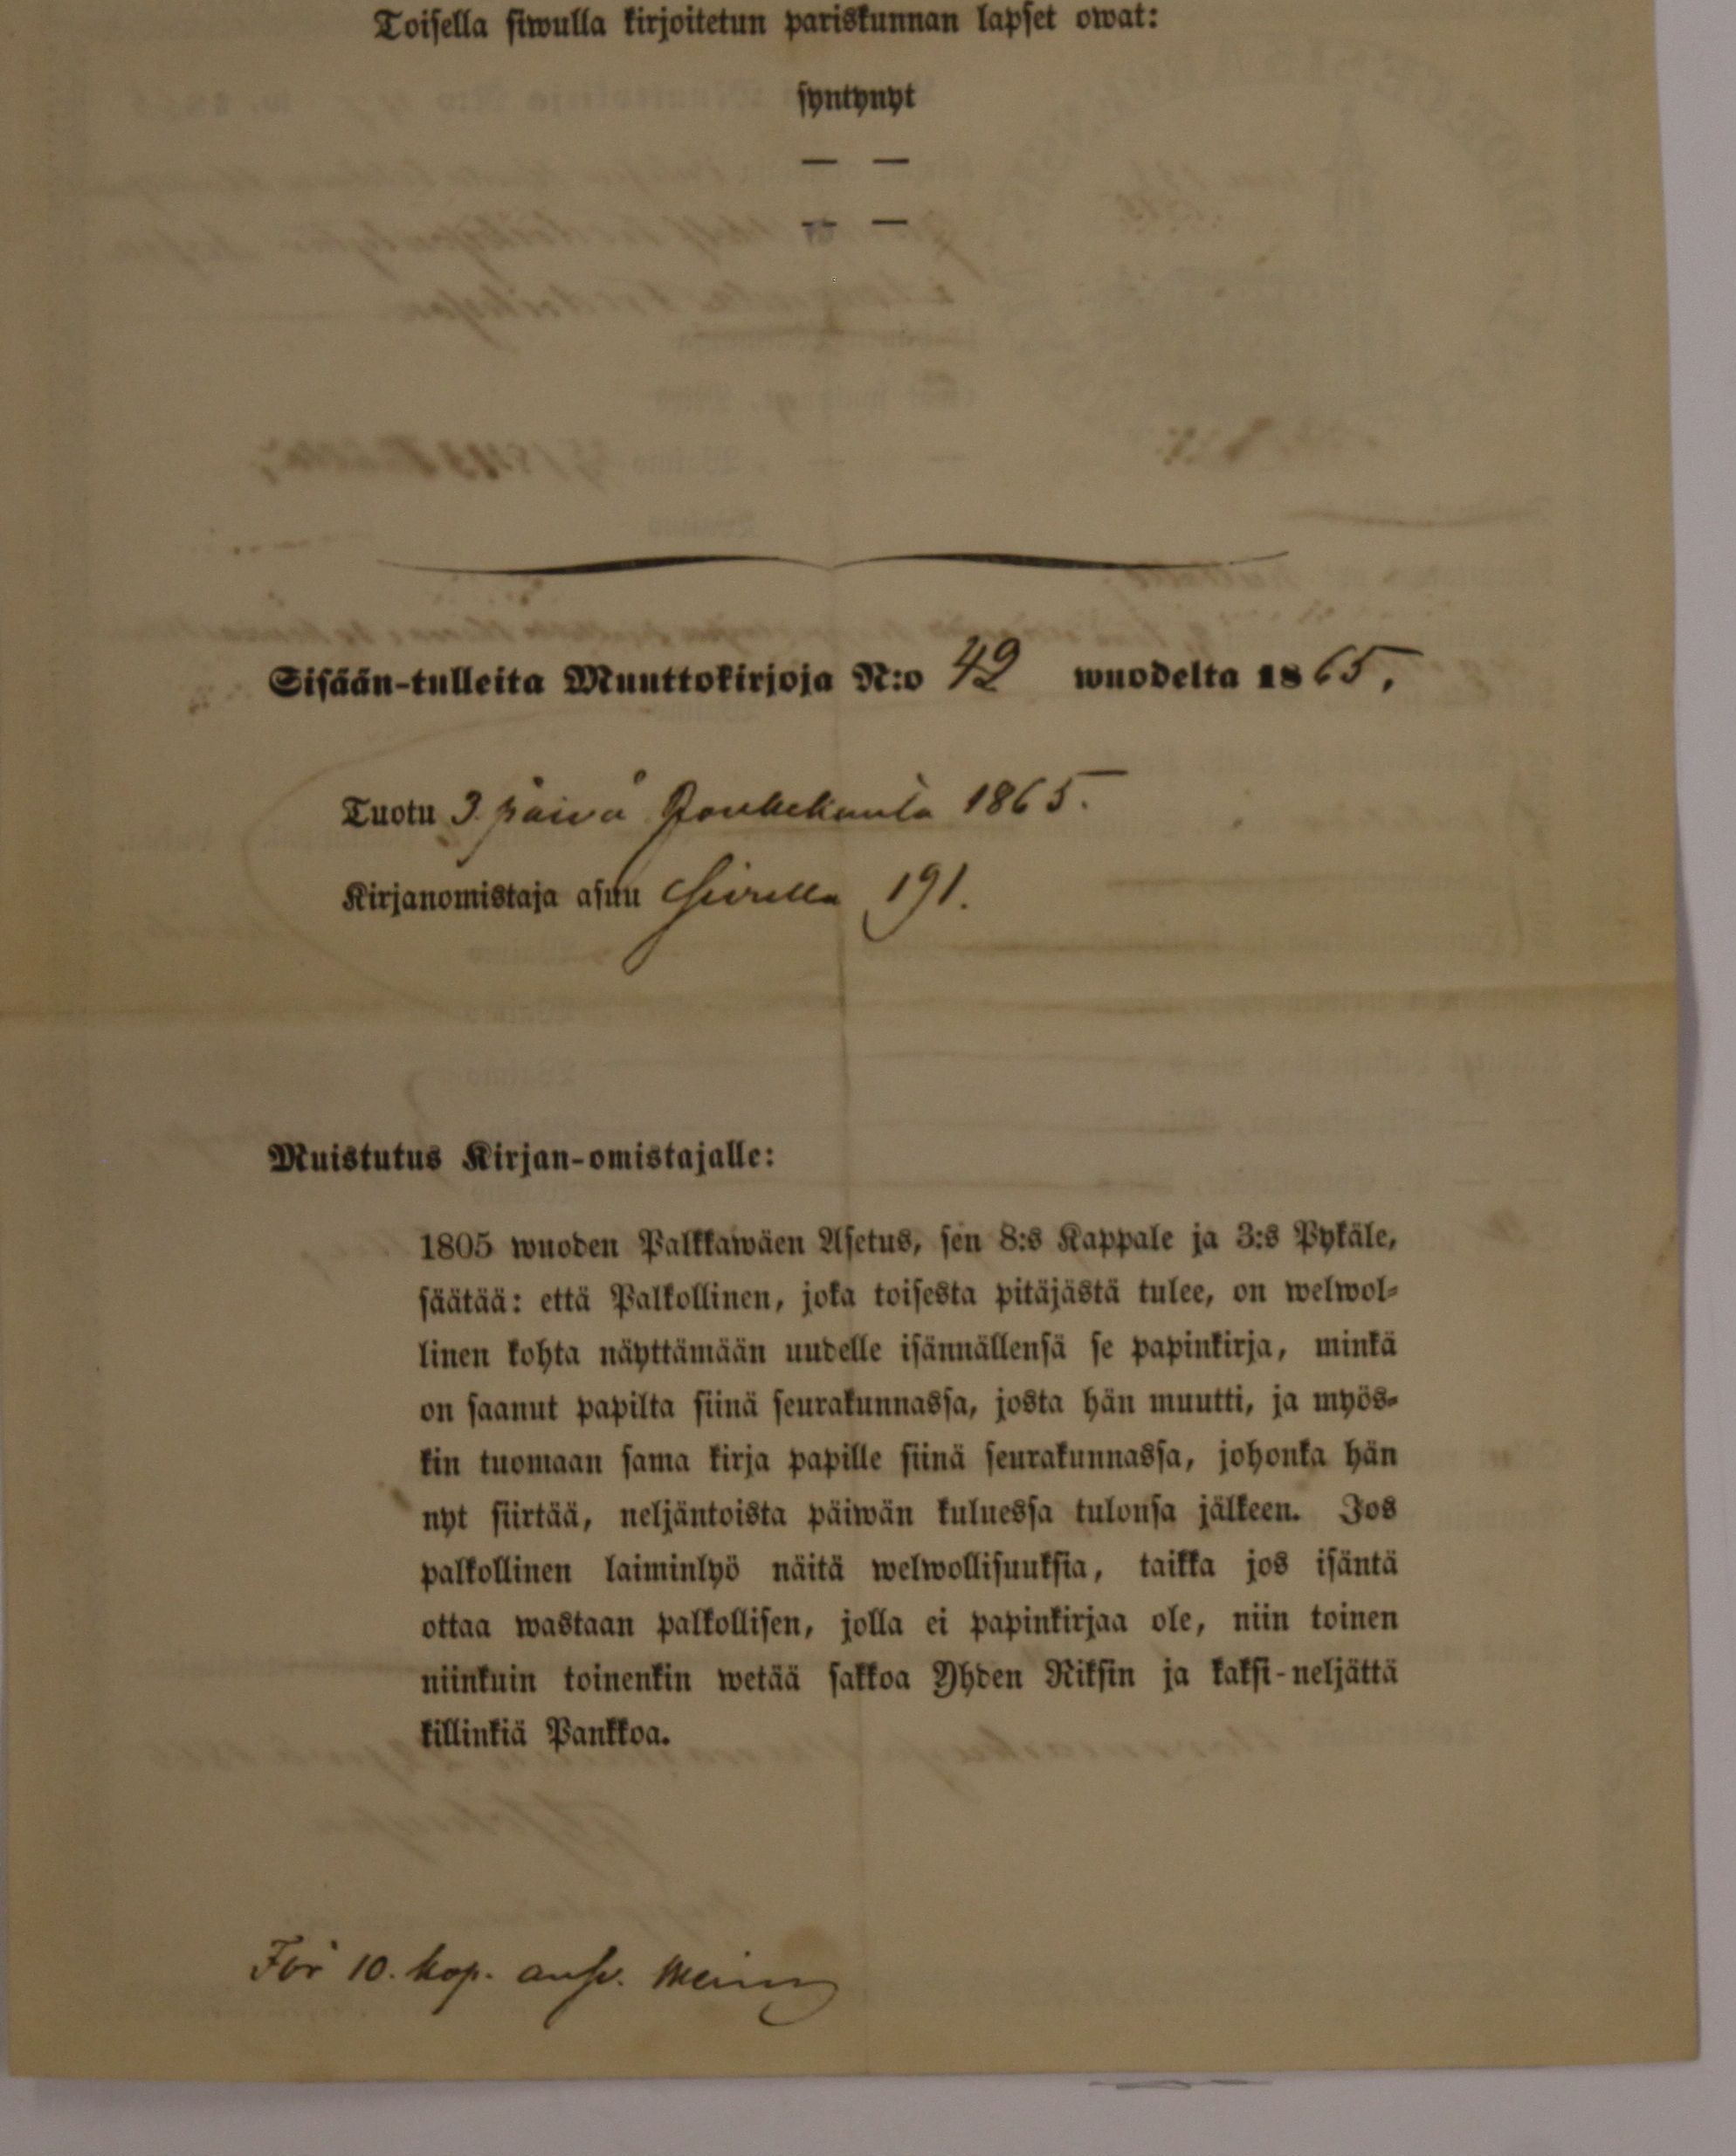 Toisella siwulla kirjoitetun pariskunnan lapset owat:
syntynyt
— —
— —
Sisään-tulleita Muuttokirjoja N:o 49 wuodelta 1865.
Tuotu 3. päivä Joulukuuta 1865.
Kirjanomistaja asuu 191.
Muistutus Kirjan-omistajalle:
1805 wuoden Palkkawäen Asetus, sen 8:s Kappale ja 3:s Pykäle,
säätää: että Palkollinen, joka toisesta pitäjästä tulee, on welwol-
linen kohta näyttämään uudelle isännällensä se papinkirja, minkä
on saanut papilta siinä seurakunnassa, josta hän muutti, ja myös-
kin tuomaan sama kirja papille siinä seurakunnassa, johonka hän
nyt siirtää, neljäntoista päiwän kuluessa tulonsa jälkeen. Jos
palkollinen laiminlyö näitä welwollisuuksia, taikka jos isäntä
ottaa wastaan palkollisen, jolla ei papinkirjaa ole, niin toinen
niinkuin toinenkin wetää sakkoa Yhden Riksin ja kaksi-neljättä
killinkiä Pankkoa.
För 10. kop. ansv.